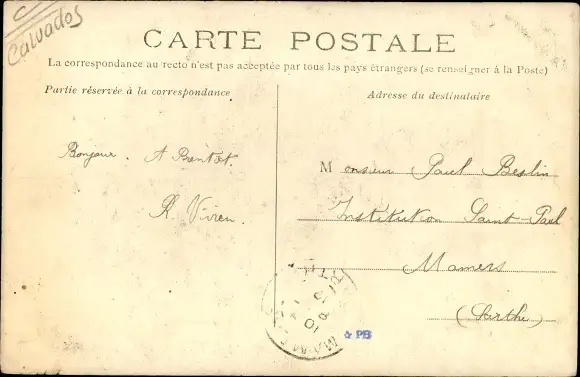 C
Calvados
CARTE POSTALE
La correspondance au recto n'est pas acceptée par tous les pays étrangers (se renseigner à la Poste)
Partie réservée à la correspondance
Adresse du destinataire
Bonjour. A Bientot.
R. Viven.
Monsieur Paul Beslin
Institution Saint-Paul
Mamers
(Sarthe)
MAMERS
PB